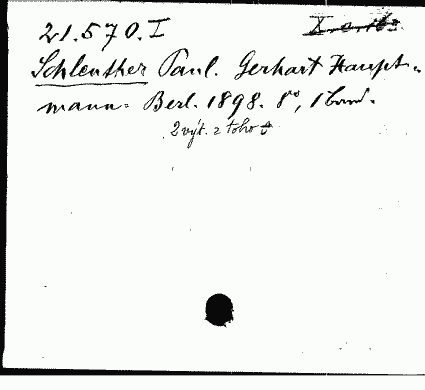 21.570.I
Schlenther Paul. Gerhart Haupt-
mann. Berl. 1898. 8°, 1 band.
2 výt. z toho